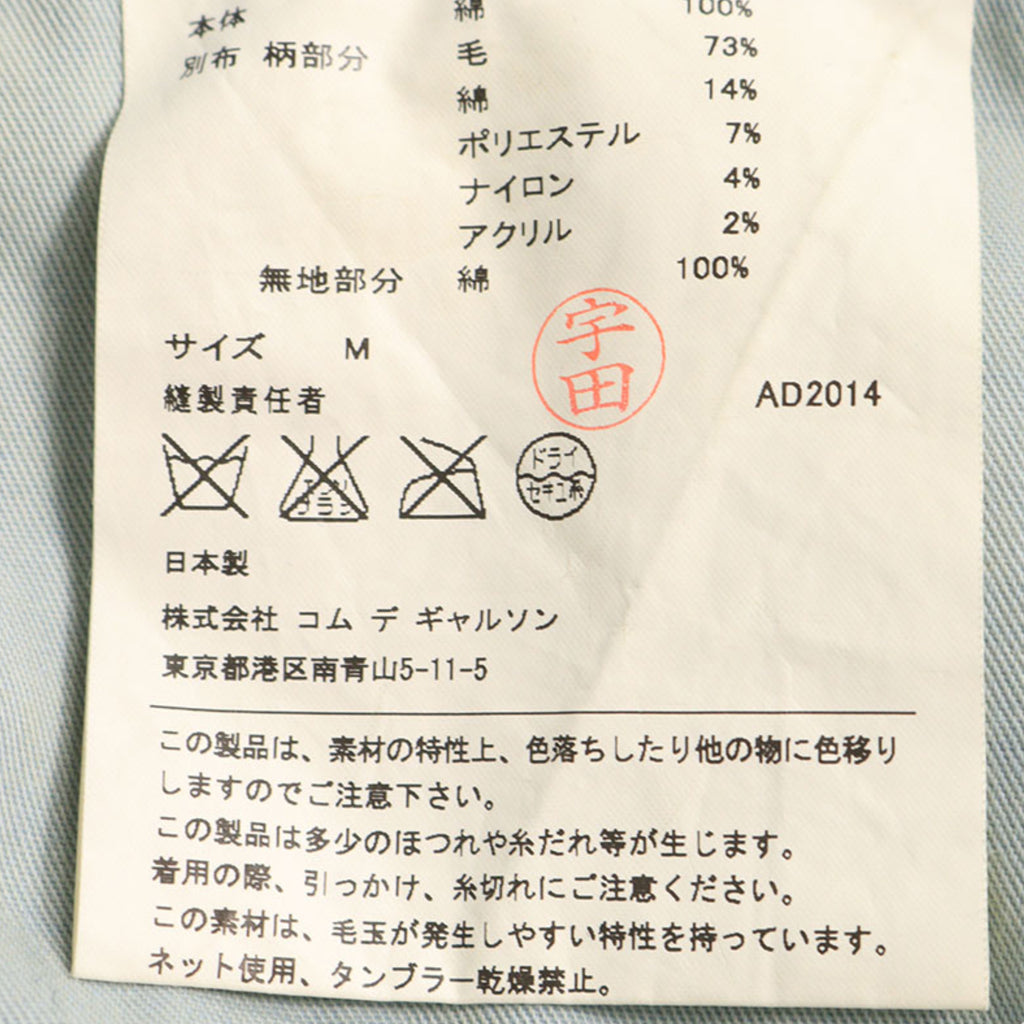 本体 綿 100%
別布 柄部分 毛 73%
綿 14%
ポリエステル 7%
ナイロン 4%
アクリル 2%
無地部分 綿 100%
サイズ M
縫製責任者 宇田 AD2014
エンソ ブラサラシ
ドライ
セキユ系
日本製
株式会社 コム デ ギャルソン
東京都港区南青山5-11-5
この製品は、素材の特性上、色落ちしたり他の物に色移り
しますのでご注意下さい。
この製品は多少のほつれや糸だれ等が生じます。
着用の際、引っかけ、糸切れにご注意ください。
この素材は、毛玉が発生しやすい特性を持っています。
ネット使用、タンブラー乾燥禁止。